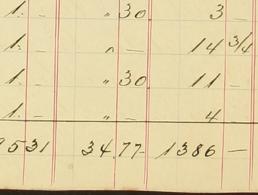 1. — " 30. 3 —
1. — " — 14 3/4
1. — " 30. 11 —
1. — " — 4 —
9531 3477- 1386 —